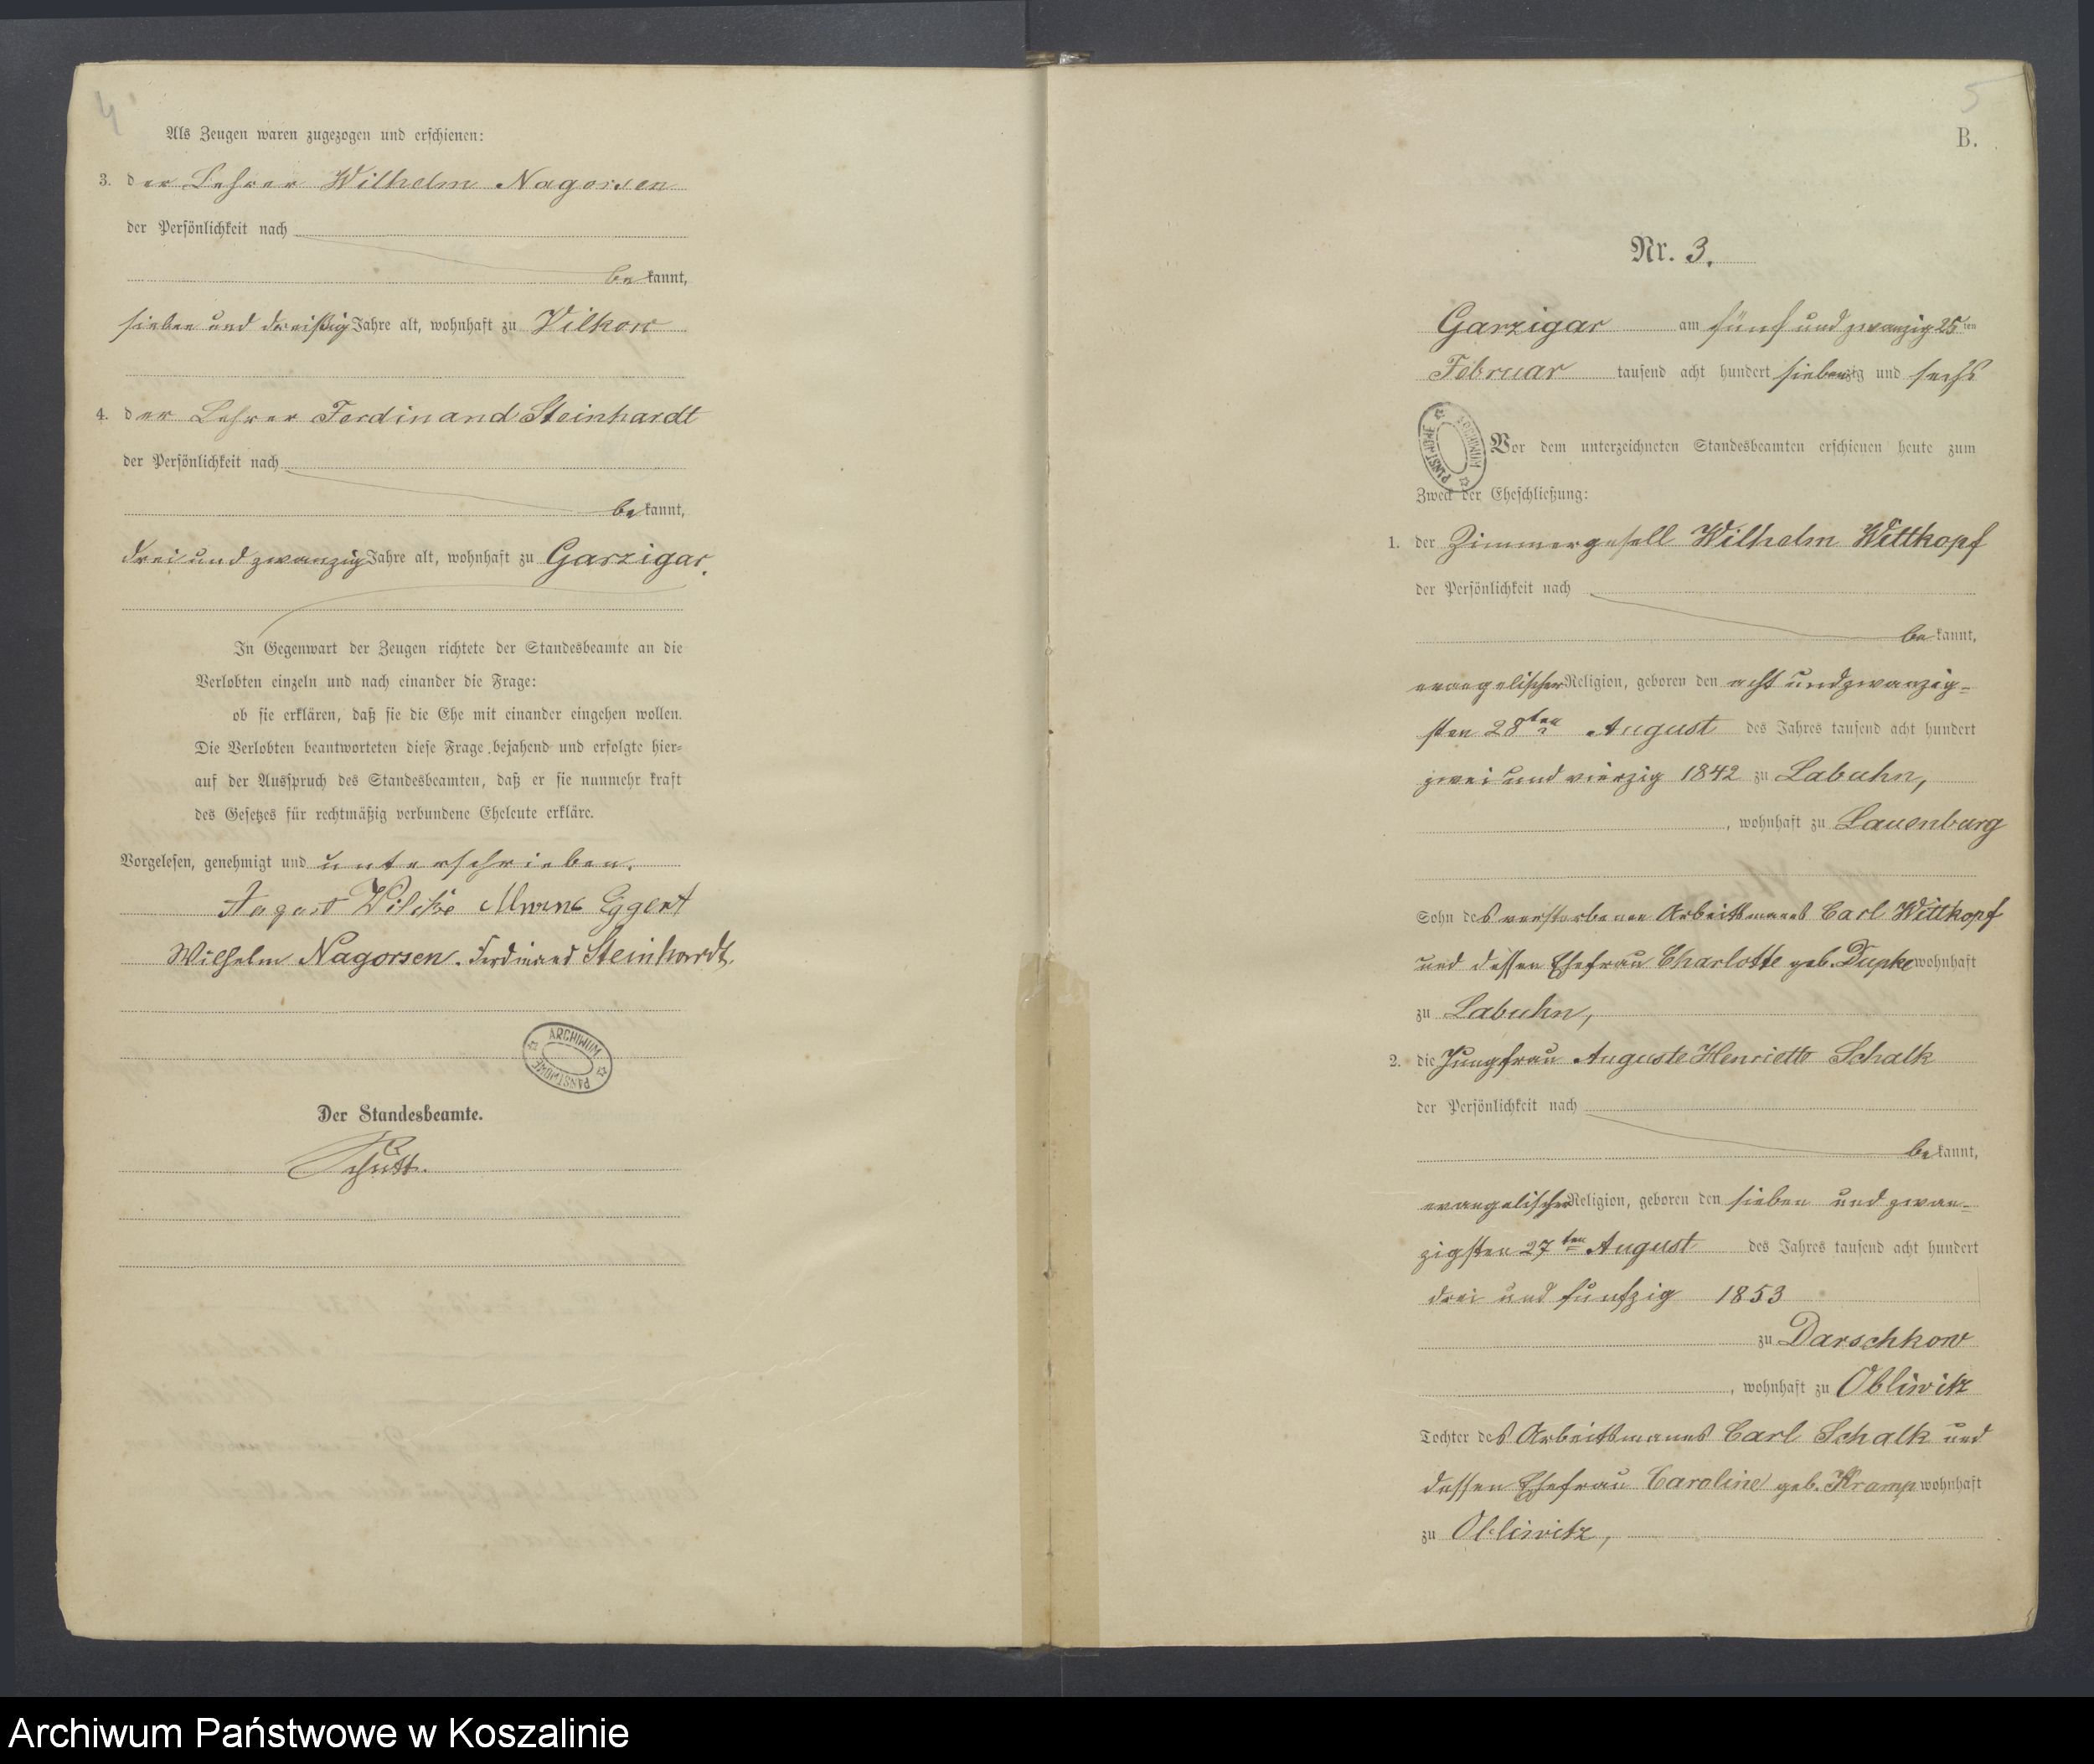 4
Als Zeugen waren zugezogen und erschienen:
3. der Lehrer Wilhelm Nagorsen
der Persönlichkeit nach
bekannt,
sieben und dreißig Jahre alt, wohnhaft zu Vilkow
4. der Lehrer Ferdinand Steinhardt
der Persönlichkeit nach
bekannt,
drei und zwanzig Jahre alt, wohnhaft zu Garzigar.
In Gegenwart der Zeugen richtete der Standesbeamte an die
Verlobten einzeln und nach einander die Frage:
ob sie erklären, daß sie die Ehe mit einander eingehen wollen.
Die Verlobten beantworteten diese Frage bejahend und erfolgte hier-
auf der Ausspruch des Standesbeamten, daß er sie nunmehr kraft
des Gesetzes für rechtmäßig verbundene Eheleute erkläre.
Vorgelesen, genehmigt und unterschrieben.
August Eggert
Wilhelm Nagorsen. Ferdinand Steinhardt.
ARCHIWUM PAŃSTWOWE
Der Standesbeamte.
Schütt.
5
B.
Nr. 3.
Garzigar am fünf und zwanzig 25ten
Februar tausend acht hundert siebenzig und sechs
ARCHIWUM PAŃSTWOWE
Vor dem unterzeichneten Standesbeamten erschienen heute zum
Zweck der Eheschließung:
1. der Zimmergesell Wilhelm Wittkopf
der Persönlichkeit nach
bekannt,
evangelischer Religion, geboren den acht und zwanzig-
sten 28ten August des Jahres tausend acht hundert
zwei und vierzig 1842 zu Labuhn,
, wohnhaft zu Lauenburg
Sohn des verstorbenen Arbeitsmanns Carl Wittkopf
und dessen Ehefrau Charlotte geb. Dupke wohnhaft
zu Labuhn,
2. die Jungfrau Auguste Henriette Schalk
der Persönlichkeit nach
bekannt,
evangelischer Religion, geboren den sieben und zwan-
zigsten 27ten August des Jahres tausend acht hundert
drei und funfzig 1853
zu Darschkow
, wohnhaft zu Obliwitz
Tochter des Arbeitsmanns Carl Schalk und
dessen Ehefrau Caroline geb. Kramp wohnhaft
zu Obliwitz,
Archiwum Państwowe w Koszalinie